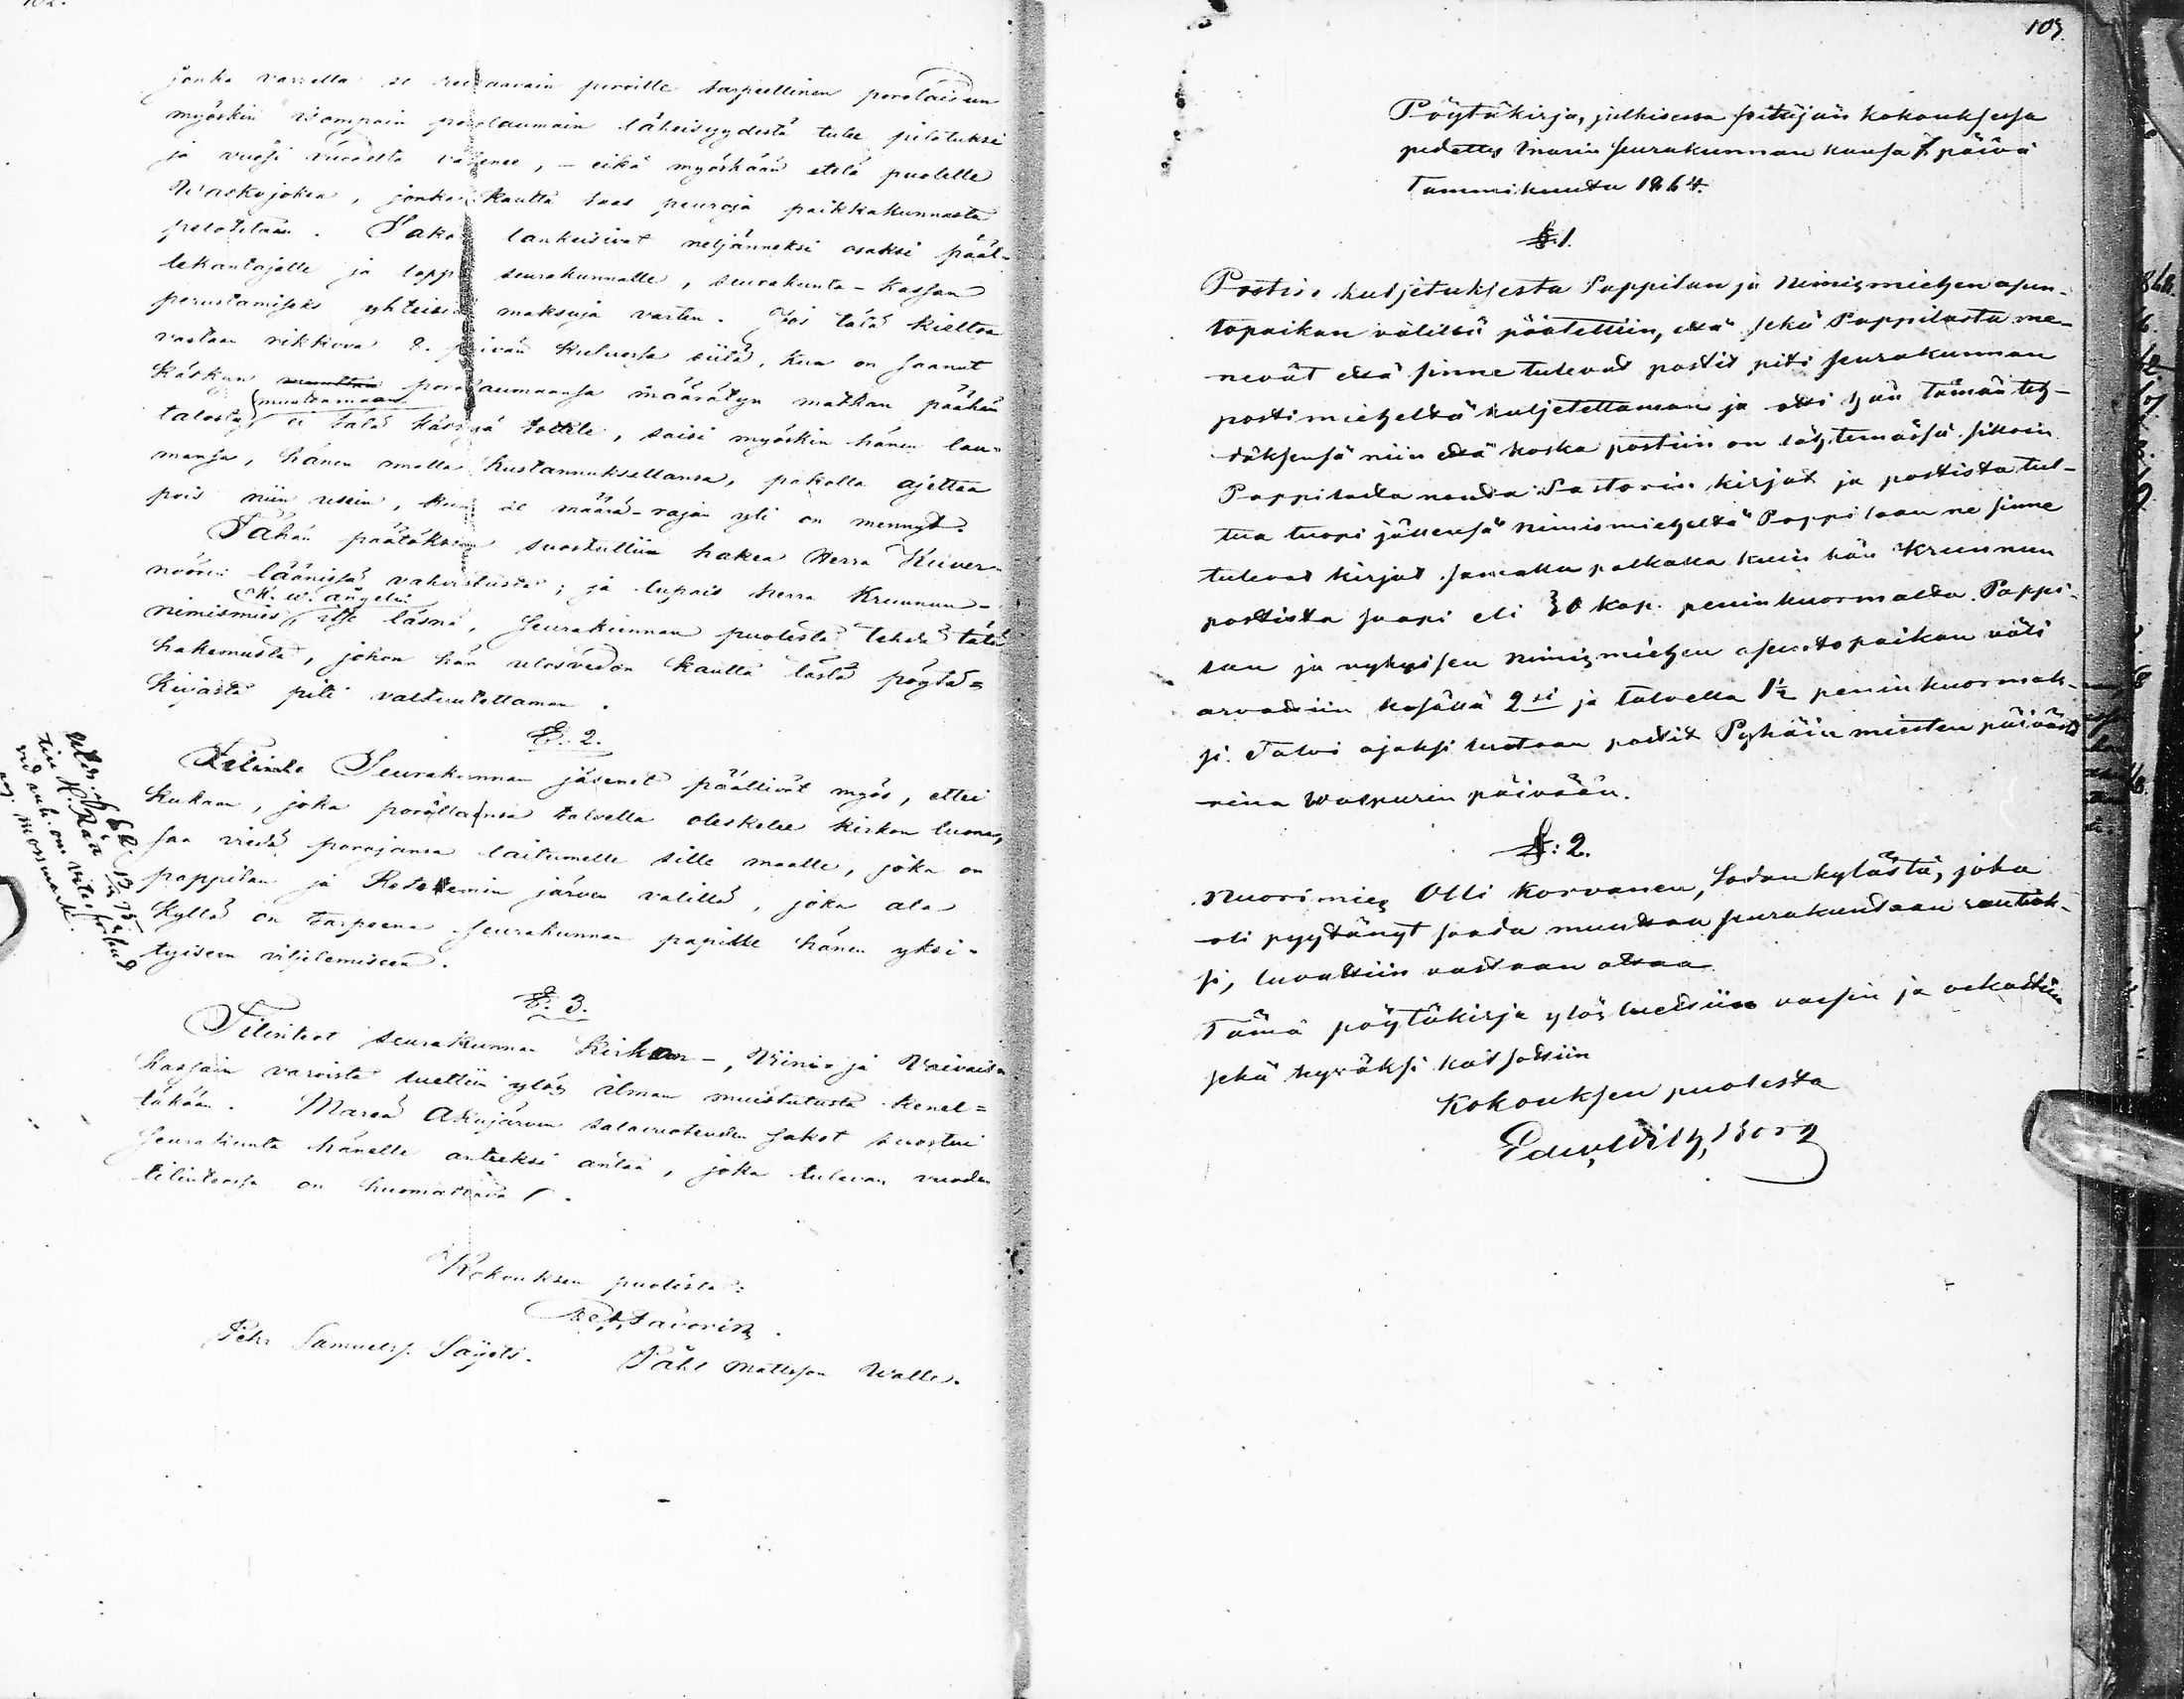 jonka varrella se reisaavain poroille tarpeellinen porolaidun
myöskin isompain porolaumain läheisyydestä tulee pilatuksi
ja vuosi vuodelta vähenee, – eikä myöskään etelä puolelle
Waskojokea, jonka kautta taas peuroja paikkakunnasta
pelotetaan. Sakot lankeisivat neljänneksi osaksi pääl-
lekantajalle ja loppu seurakunnalle, seurakunta-kassan
perustamiseks yhteisiä maksuja varten. Jos tätä kieltoa
vastaan rikkova 8. päivän kuluessa siitä, kun on saanut
käskyn porolaumaansa määrätyn matkan päähän
muuttamaan
talosta, ei tätä käskyä tottele, saisi myöskin hänen lau-
mansa, hänen omalla kustannuksellansa, pakolla ajettaa
pois niin usein, kun se määrä-rajan yli on mennyt.
Tähän päätökseen suostuttiin hakea Herra Kuver-
nöörin läänissä vahvistusta; ja lupais herra Kruunun-
K. W. Angelin
nimismies, itse läsnä, Seurakunnan puolesta tehdä tätä
hakemusta, johon hän ulosvedon kautta tästä pöytä-
kirjasta piti valtuutettaman.
§. 2.
Seurakunnan jäsenet päättivät myös, ettei
kukaan, joka porollansa talvella oleskelee kirkon luona,
saa viedä porojansa laitumelle sille maalle, joka on
pappilan ja järven välillä, joka ala
kyllä on tarpeena seurakunnan papille hänen yksi-
tyiseen viljelemiseen.
§. 3.
Tilinteot seurakunnan Kirkon-, Viini- ja Vaivais-
kassain varoista luettiin ylös ilman muistutusta kenel-
täkään. Marea Akujärven salavuoteuden sakot suostui
Seurakunta hänelle anteeksi antaa, joka tulevan vuoden
tilinteossa on huomattava.
Kokouksen puolesta:
Pehr Samuelss. Säyets. Påhl Mattsson Walle.
103.
Pöytäkirja, julkisessa pitäjän kokouksessa
pidetty Inarin seurakunnan kansa 7 päivä
Tammikuuta 1864.
§. 1.
Postin kuljetuksesta Pappilan ja Nimismiehen asun-
topaikan välillä päätettiin, että sekä Pappilasta me-
nevät että sinne tulevat postit piti seurakunnan
postimieheltä kuljetettaman ja otti hän tämän teh-
däksensä niin että koska postiin on lähtemässä silloin
Pappilasta noutaa Pastorin kirjat ja postista tul-
tua tuopi jällensä Nimismieheltä Pappilaan ne sinne
tulevat kirjat samalla palkalla kuin hän Kruunun
postista saapi eli 30 kop. peninkuormalta. Pappi-
lan ja nykyisen Nimismiehen asuntopaikan väli
arvattiin kesällä 2si ja talvella 1½ peninkuormak-
si. Talvi ajaksi luetaan postit Pyhäin miesten päivästä
niin Walpurin päivään.
§: 2.
Nuorimies Olli Korvanen, Sodankylästä, joka
oli pyytänyt saada muuttaa seurakuntaan rentiök-
si, luvattiin vastaan ottaa.
Tämä pöytäkirja ylös luettiin vaesin ja oekattiin
sekä hyväksi katsottiin
Kokouksen puolesta
Edw, Wilh, Borg